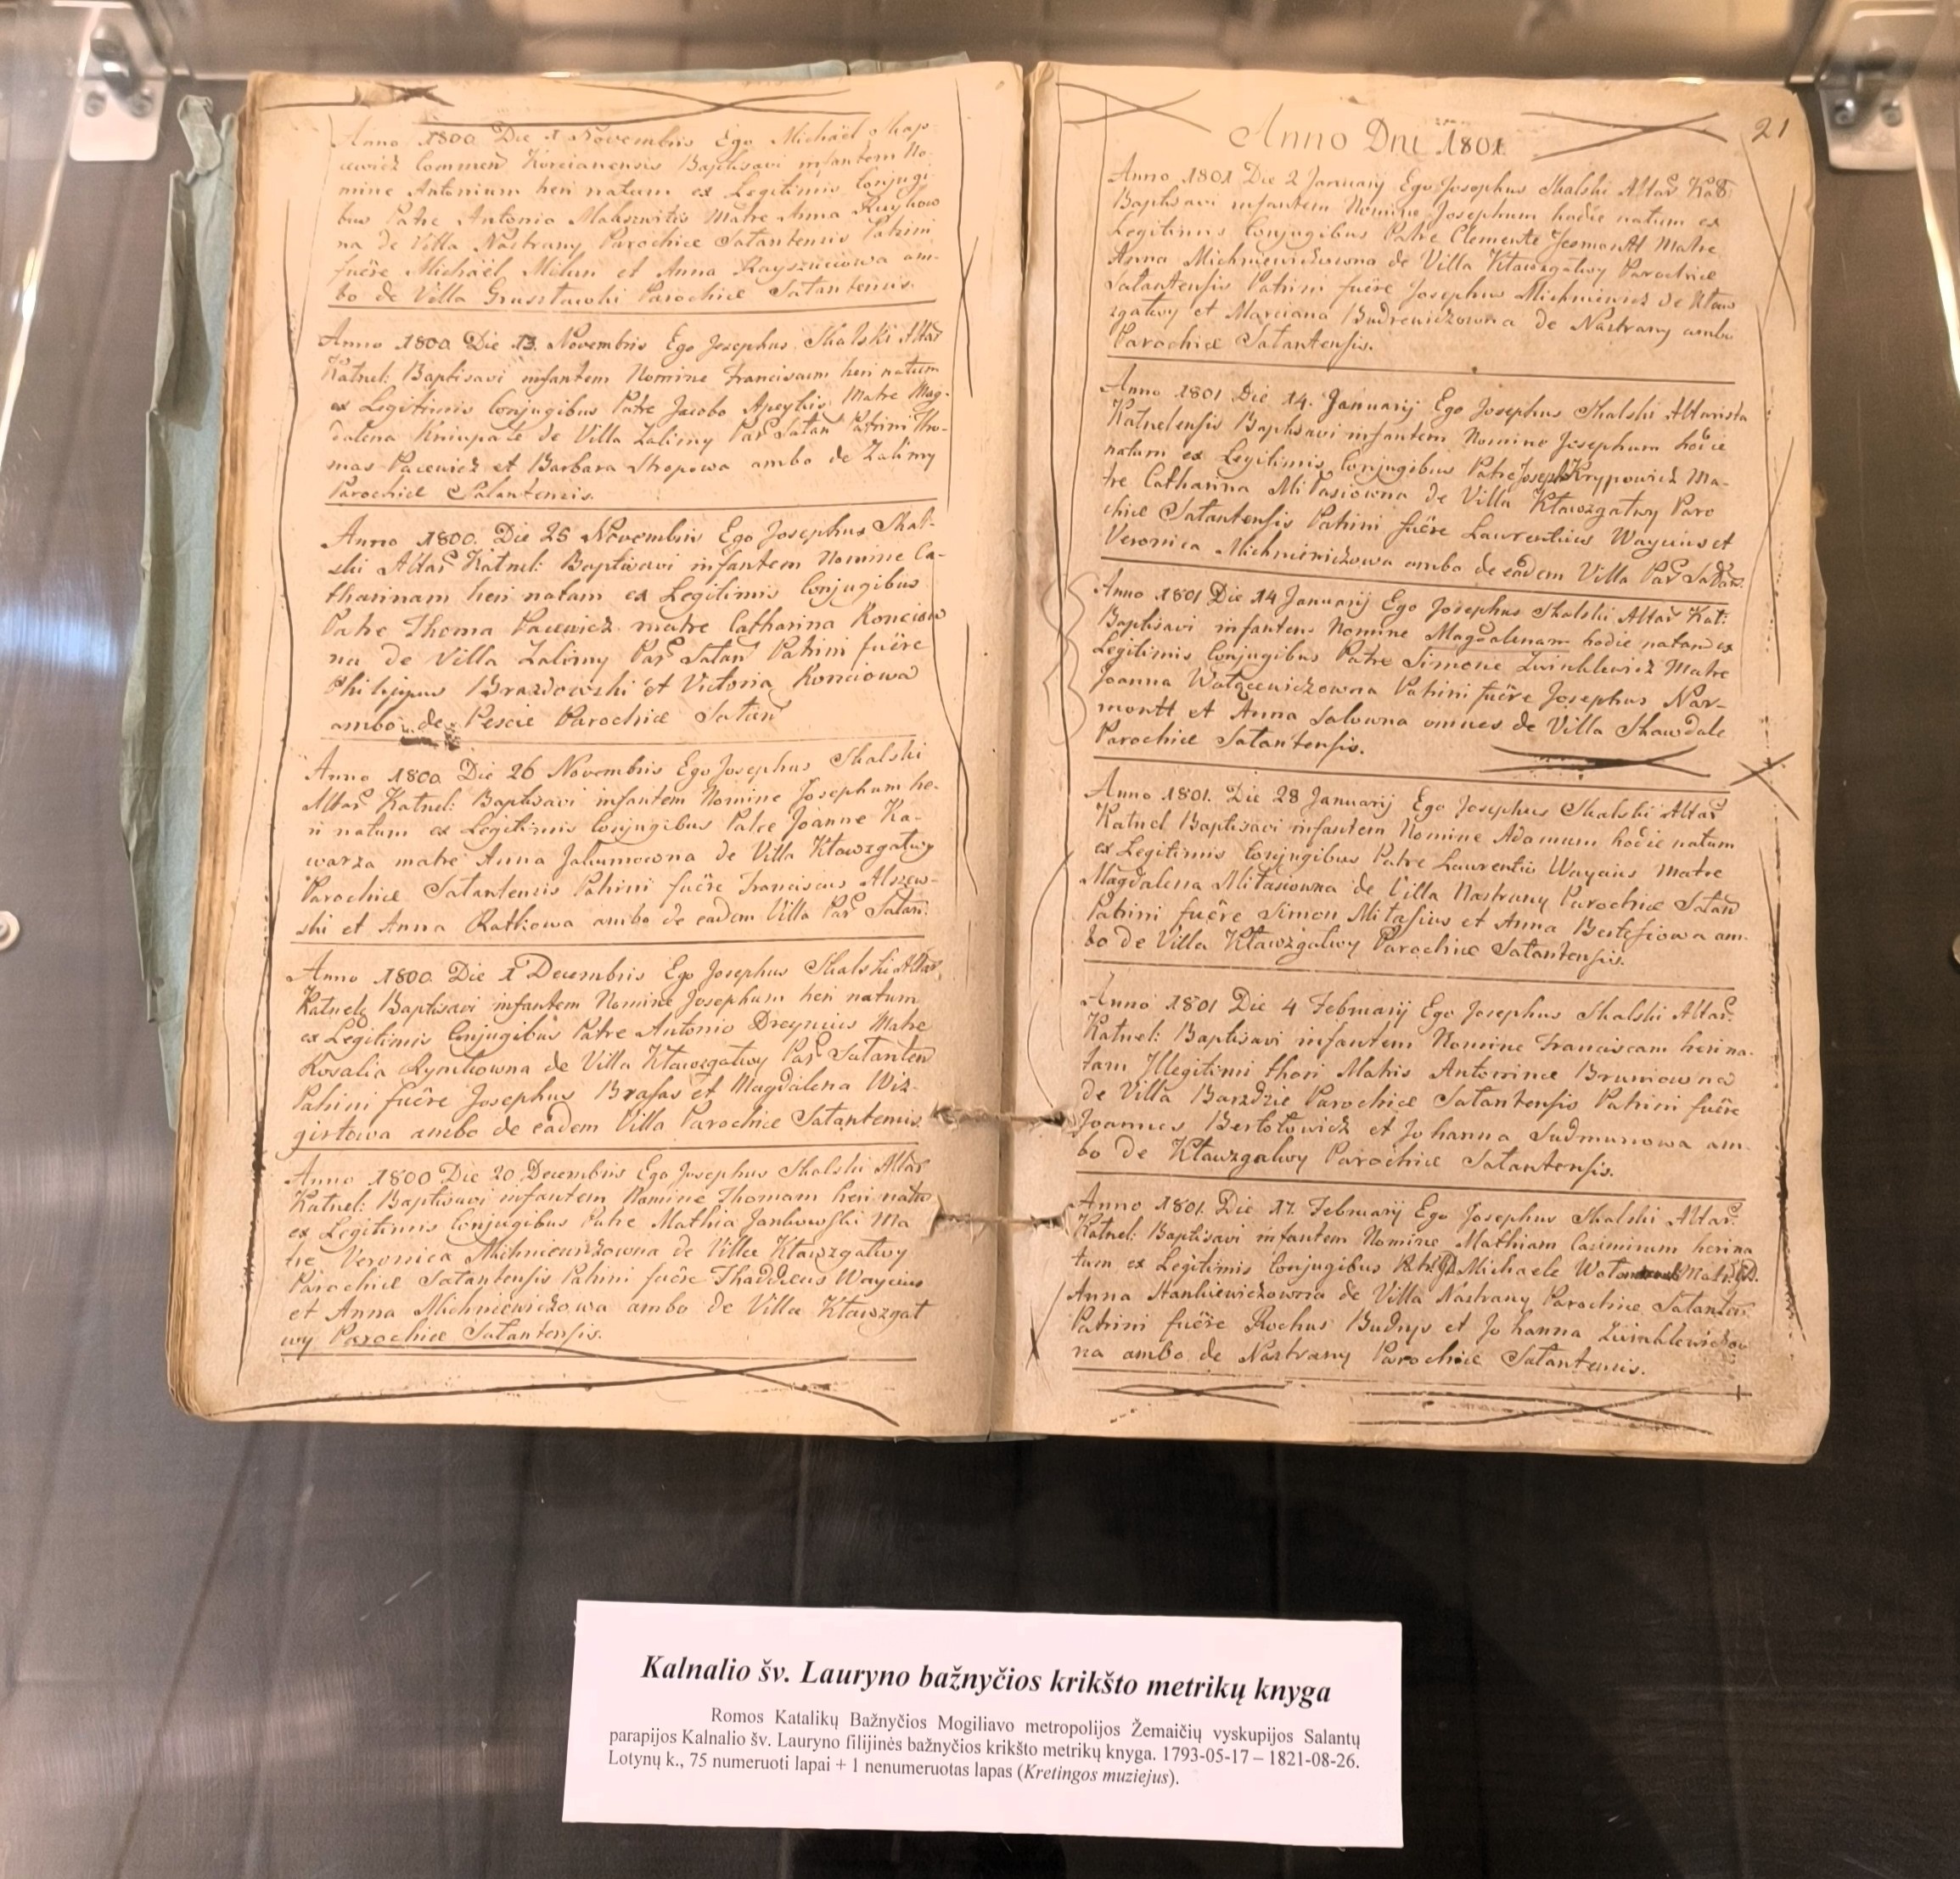 Anno 1800 Die 1 Novembris Ego Michaël
Commend Baptisavi infantem No-
mine Antonium heri natum ex Legitimis Conjugi-
bus Patre Antonio Matre Anna
na de Villa Nastrany Parochiæ Satantensis Patrini
fuêre Michaël et Anna am-
bo de Villa Parochiæ Satantensis.
Anno 1800 Die 13. Novembris Ego Josephus Skalski Altar
Katnel: Baptisavi infantem Nomine Franciscum heri natum
ex Legitimis Conjugibus Patre Jacobo Matre Mag-
dalena de Villa Zalimy Par Satan Patrini Tho-
mas Pacewicz et Barbara ambo de Zalimy
Parochiæ Salantensis.
Anno 1800. Die 25 Novembris Ego Josephus Skal-
ski Altar Katnel: Baptisavi infantem Nomine Ca-
tharinam heri natam ex Legitimis Conjugibus
Patre Thoma Pacewicz matre Catharina
na de Villa Zalimy Par Satan Patrini fuêre
Philippus Brazdowski et Victoria Konciowa
ambo de Pescie Parochiæ Satan
Anno 1800 Die 26 Novembris Ego Josephus Skalski
Altar Katnel: Baptisavi infantem Nomine Josephum he-
ri natum ex Legitimis Conjugibus Patre Joanne Ka-
warza matre Anna de Villa Kławzgalwy
Parochiæ Satantensis Patrini fuêre Franciscus Alszew-
ski et Anna Ratkowa ambo de eadem Villa Par Satan.
Anno 1800. Die 1 Decembris Ego Josephus Skalski Altar.
Katnel: Baptisavi infantem Nomine Josephum heri natum
ex Legitimis Conjugibus Patre Antonio Matre
Rosalia de Villa Kławzgalwy Par Satanten
Patrini fuêre Josephus et Magdalena Wiz-
girtowa ambo de eadem Villa Parochiæ Satantensis.
Anno 1800 Die 20 Decembris Ego Josephus Skalski Altar
Katnel: Baptisavi infantem Nomine Thomam heri
ex Legitimis Conjugibus Patre Mathia Jankowski Ma
tre Veronica Michniewiczowna de Villa Kławzgalwy
Parochiæ Satantensis Patrini fuêre Thaddæus Waycius
et Anna Michniewiczowa ambo de Villa Kławzgal
wy Parochiæ Satantensis.
21
Anno Dni 1801.
Anno 1801 Die 2 Januarij Ego Josephus Skalski Altar
Baptisavi infantem Nomine Josephum hodie natum ex
Legitimis Conjugibus Patre Clemente Matre
Anna Michniewiczowna de Villa Kławzgalwy Parochiæ
Satantensis Patrini fuêre Josephus Michniewicz de Kław
zgalwy et Marciana Budrewiczowna de Nastrany ambo
Parochiæ Satantensis.
Anno 1801 Die 14. Januarij Ego Josephus Skalski Altarista
Katnelensis Baptisavi infantem Nomine Josephum hodie
natum ex Legitimis Conjugibus Patre Joseph Krypowicz Ma-
tre Catharina Mitasiowna de Villa Kławzgalwy Paro
chiæ Satantensis Patrini fuêre Laurentius Waycius et
Veronica Michniewiczowa ambo de eadem Villa Par Satan.
Anno 1801 Die 14 Januarij Ego Josephus Skalski Altar Kat:
Baptisavi infantem Nomine Magdalenam hodie natam ex
Legitimis Conjugibus Patre Simone Zwinklewicz Matre
Joanna Patrini fuêre Josephus Nar-
montt et Anna omnes de Villa Skawdale
Parochiæ Satantensis.
Anno 1801. Die 28 Januarij Ego Josephus Skalski Altar
Katnel Baptisavi infantem Nomine Adamum hodie natum
ex Legitimis Conjugibus Patre Laurentio Waycius Matre
Magdalena Mitasiowna de Villa Nastrany Parochiæ Satan
Patrini fuêre Simon Mitasius et Anna am-
bo de Villa Kławzgalwy Parochiæ Satantensis.
Anno 1801 Die 4 Februarij Ego Josephus Skalski Altar.
Katnel: Baptisavi infantem Nomine Franciscam heri na-
tam Illegitimi thori Matris Antoninæ Bruniowna
de Villa Barzdzie Parochiæ Satantensis Patrini fuêre
Joannes Bertotowicz et Johanna Sudmunowa am-
bo de Kławzgalwy Parochiæ Satantensis.
Anno 1801. Die 17. Februarij Ego Josephus Skalski Altar.
Katnel: Baptisavi infantem Nomine Mathiam Casimirum heri na
tum ex Legitimis Conjugibus Michaele
Anna Stankiewiczowna de Villa Nastrany Parochiæ Satanten.
Patrini fuêre Rochus Budrys et Johanna Zwinklewiczow
na ambo de Nastrany Parochiæ Satantensis.
Kalnalio šv. Lauryno bažnyčios krikšto metrikų knyga
Romos Katalikų Bažnyčios Mogiliavo metropolijos Žemaičių vyskupijos Salantų
parapijos Kalnalio šv. Lauryno filijinės bažnyčios krikšto metrikų knyga. 1793-05-17 – 1821-08-26.
Lotynų k., 75 numeruoti lapai + 1 nenumeruotas lapas (Kretingos muziejus).